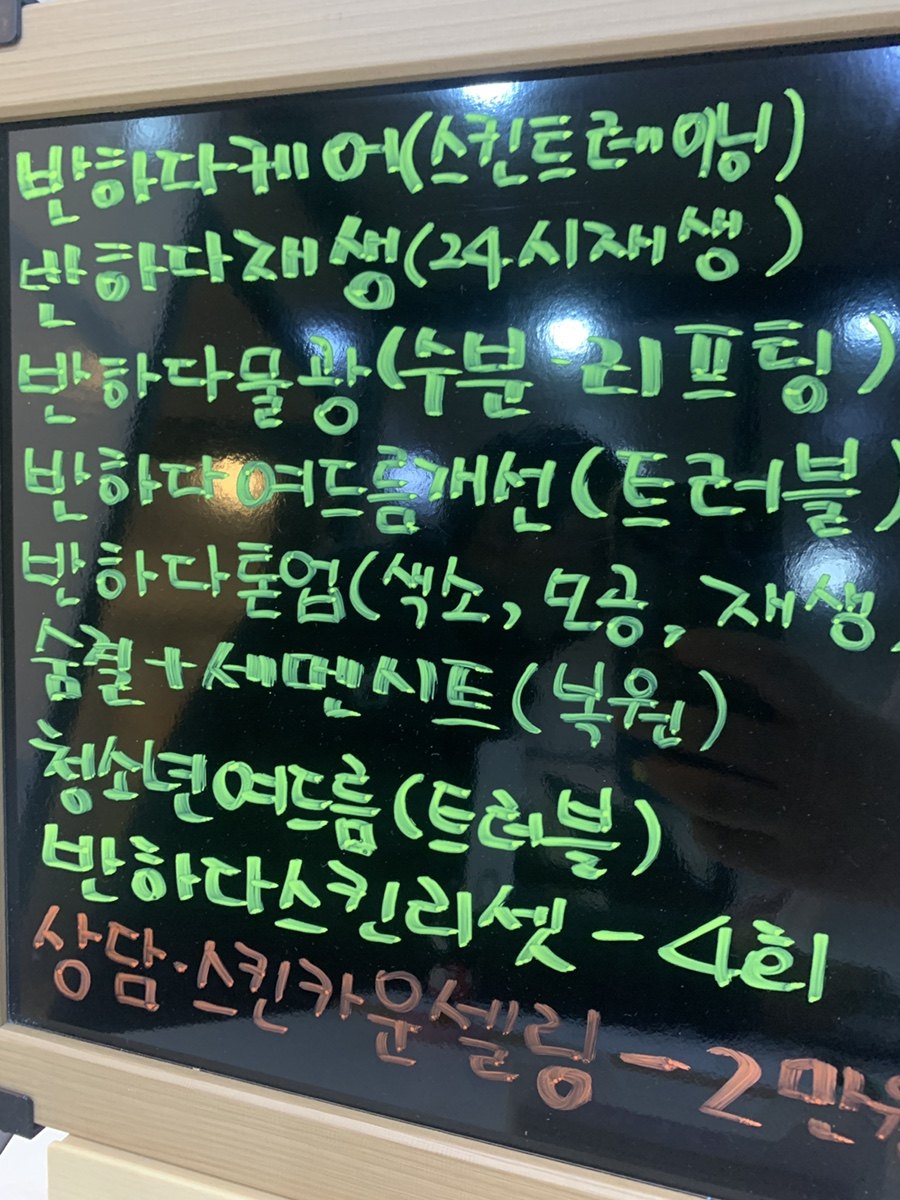 반하다케어(스킨트레이닝)
반하다재생(24시재생)
반하다물광(수분·리프팅)
반하다여드름개선(트러블)
반하다톤업(색소, 모공, 재생)
숨결+세멘시트(복원)
청소년여드름(트러블)
반하다스킨리셋-4회
상담·스킨카운셀링-2만